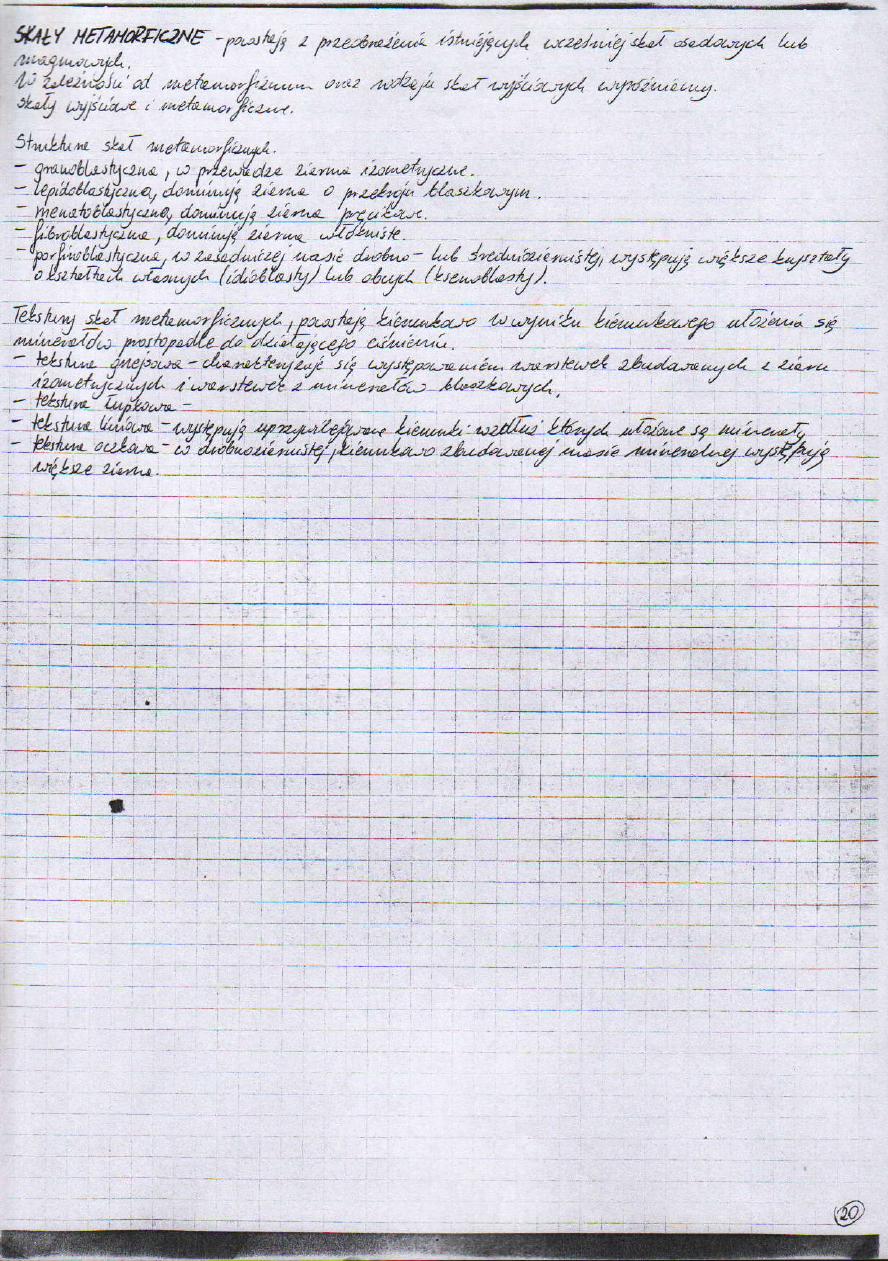 SKAŁY METAMORFICZNE - powstają z przeobrażenia istniejących wcześniej skał osadowych lub
magmowych.
W zależności od metamorfizmu oraz rodzaju skał wyjściowych wyróżniamy.
skały wyjściowe i metamorficzne.
Struktura skał metamorficznych.
- granoblastyczna, w przewadze ziarna izometryczne.
- lepidoblastyczna, dominują ziarna o przekroju blaszkowym.
- nematoblastyczna, dominują ziarna pręcikow.
- fibroblastyczna, dominują ziarna włókniste.
- porfiroblastyczna, w zasadniczej masie drobno- lub średnioziarnistej, występują większe kryształy
o kształtach własnych (idioblasty) lub obcych (ksenoblasty).
Tekstury skał metamorficznych, powstają kierunkowo w wyniku kierunkowego ułożenia się
minerałów prostopadle do działającego ciśnienia.
- tekstura gnejsowa - charakteryzuje się występowaniem warstewek zbudowanych z ziarn
izometrycznych i warstewek z minerałów blaszkowych.
- tekstura łupkowa -
- tekstura liniowa - występują uprzywilejowane kierunki wzdłuż których ułożone są minerały
- tekstura oczkowa - w drobnoziarnistej, kierunkowo zbudowanej masie mineralnej występują
większe ziarna.
20